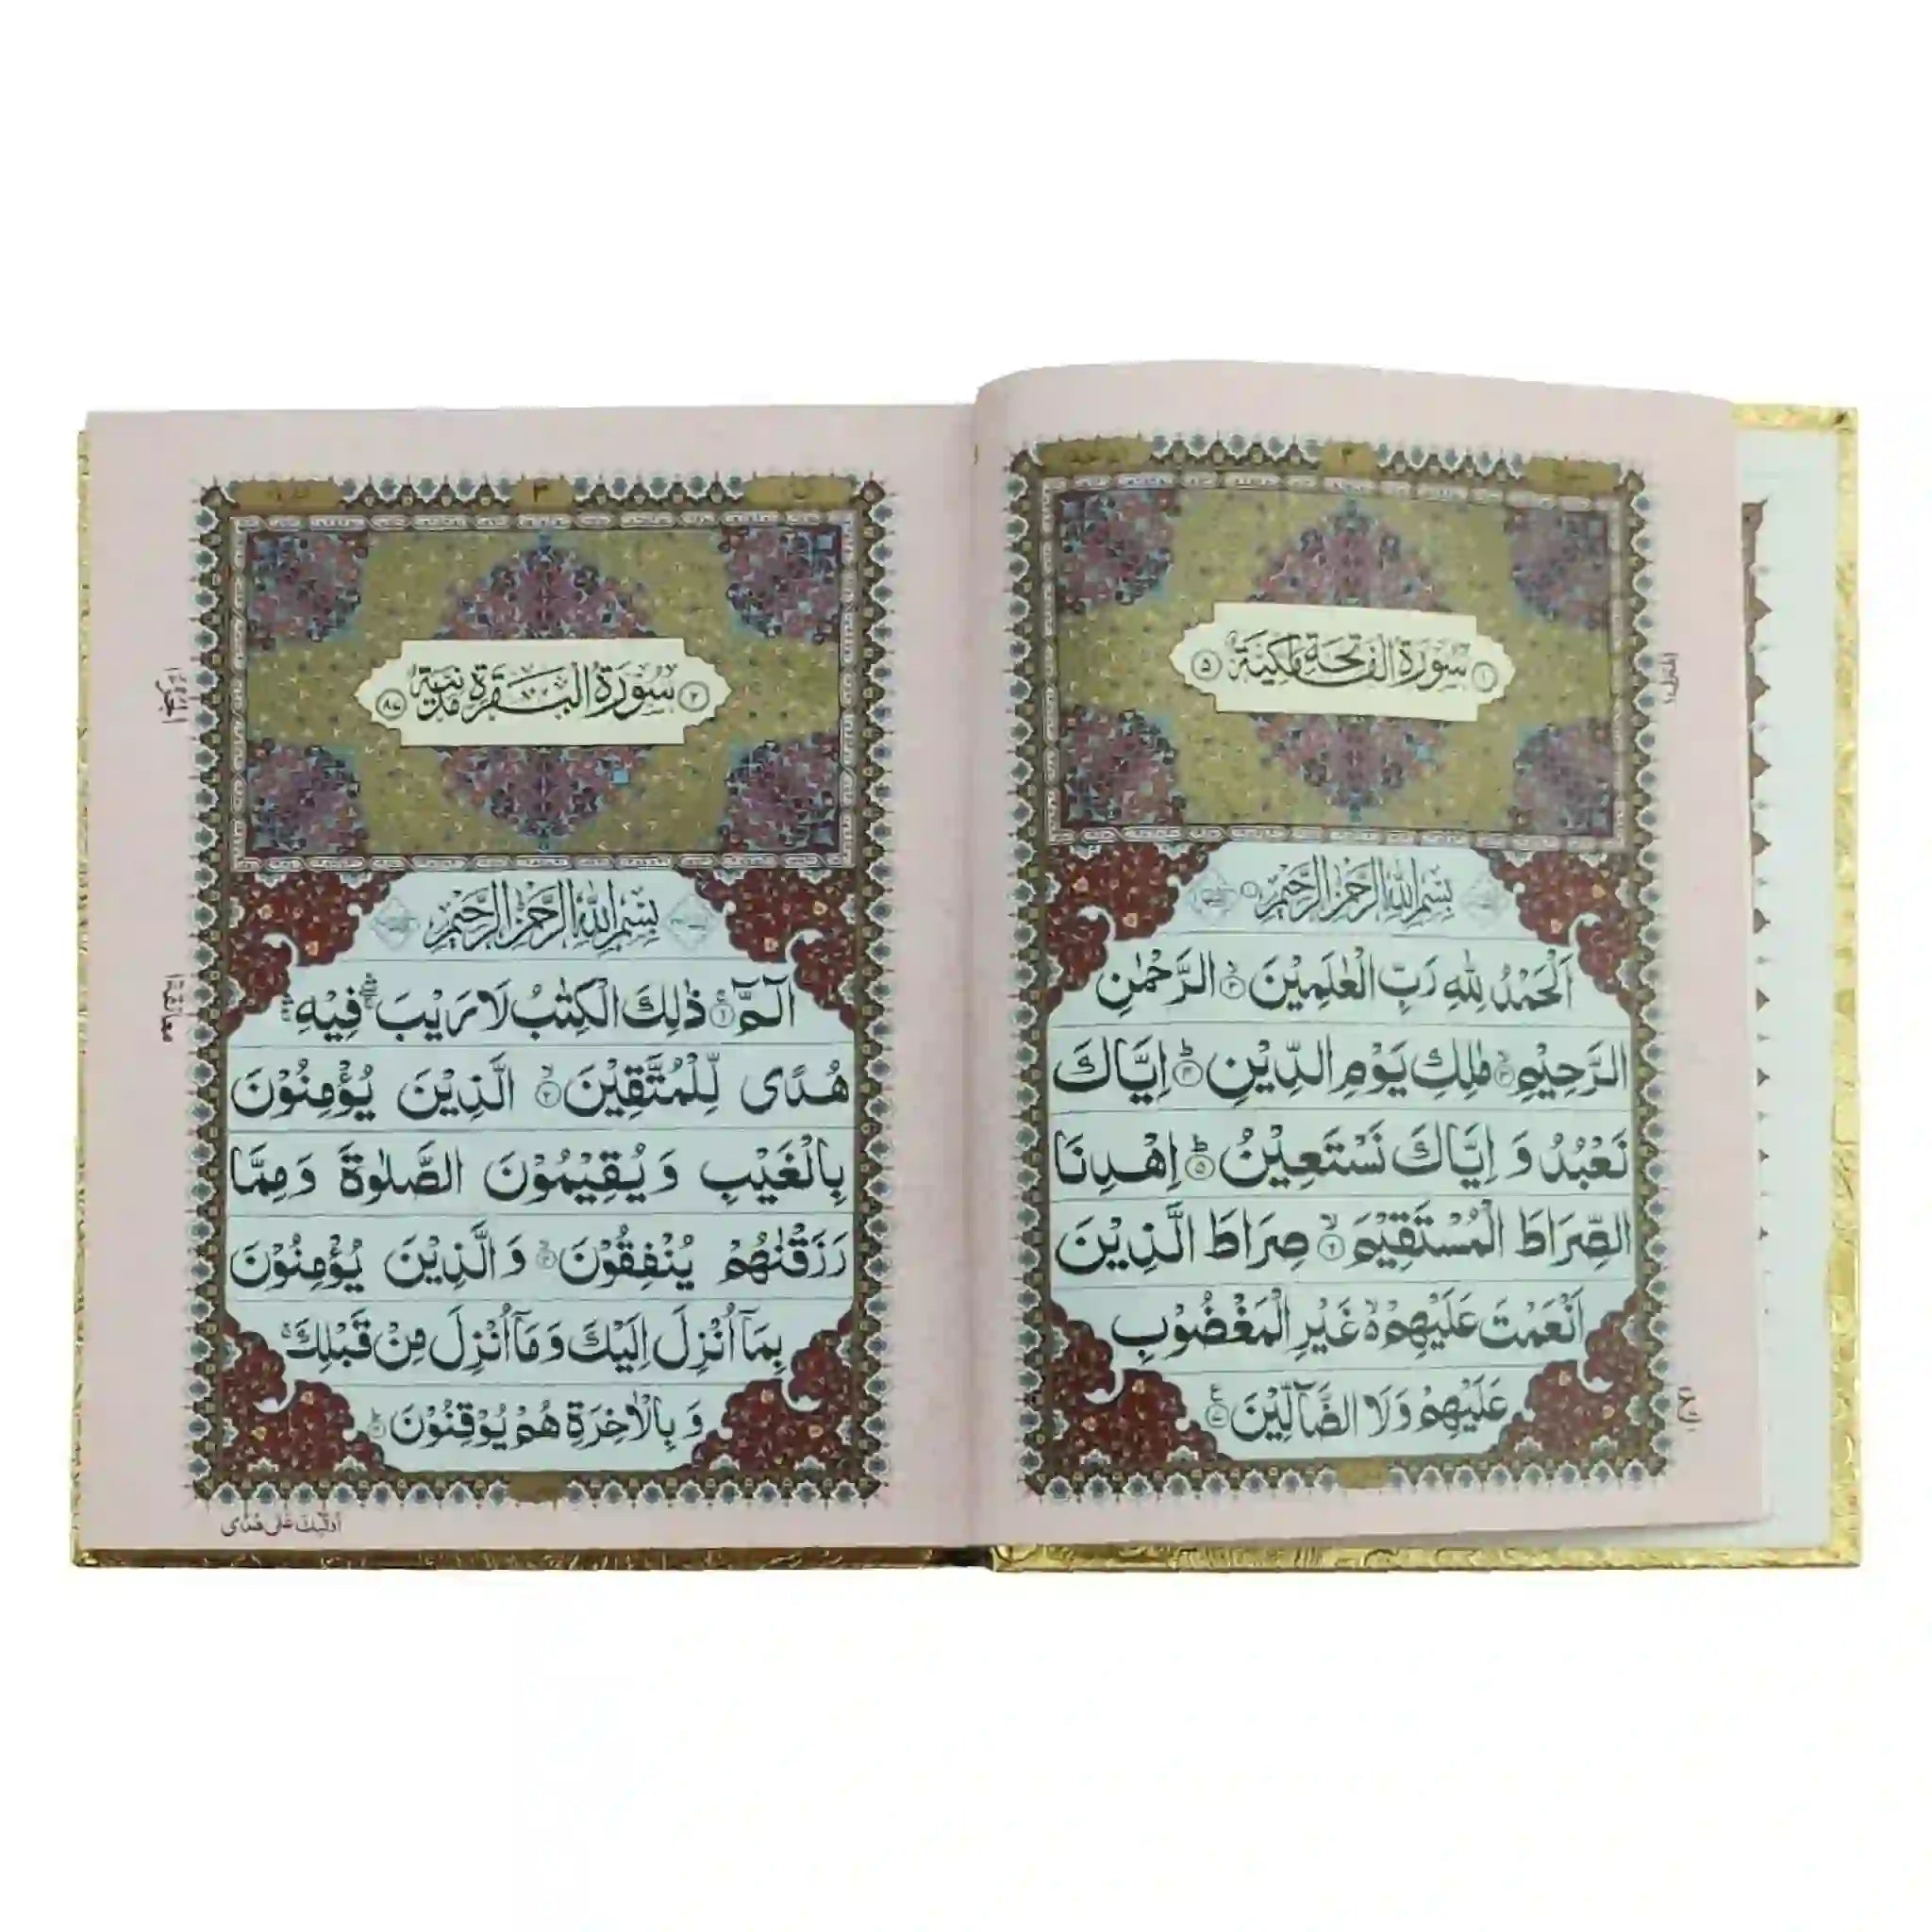 ٣
١ سُوْرَةُ الْفَاتِحَةِ مَكِّيَّةٌ ٥
بِسْمِ اللّٰهِ الرَّحْمٰنِ الرَّحِيْمِ
اَلْحَمْدُ لِلّٰهِ رَبِّ الْعٰلَمِيْنَ ۙ﴿۲﴾ الرَّحْمٰنِ
الرَّحِيْمِ ۙ﴿۳﴾ مٰلِكِ يَوْمِ الدِّيْنِ ؕ﴿۴﴾ اِيَّاكَ
نَعْبُدُ وَ اِيَّاكَ نَسْتَعِيْنُ ؕ﴿۵﴾ اِهْدِنَا
الصِّرَاطَ الْمُسْتَقِيْمَ ۙ﴿۶﴾ صِرَاطَ الَّذِيْنَ
اَنْعَمْتَ عَلَيْهِمْ ۙ۬ غَيْرِ الْمَغْضُوْبِ
عَلَيْهِمْ وَلَا الضَّآلِّيْنَ ﴿۷﴾
ع
٣
٢ سُوْرَةُ الْبَقَرَةِ مَدَنِيَّةٌ ٨٧
بِسْمِ اللّٰهِ الرَّحْمٰنِ الرَّحِيْمِ
الٓمّٓ ۚ﴿۱﴾ ذٰلِكَ الْكِتٰبُ لَا رَيْبَ فِيْهِ
هُدًى لِّلْمُتَّقِيْنَ ۙ﴿۲﴾ الَّذِيْنَ يُؤْمِنُوْنَ
بِالْغَيْبِ وَيُقِيْمُوْنَ الصَّلٰوةَ وَمِمَّا
رَزَقْنٰهُمْ يُنْفِقُوْنَ ۙ﴿۳﴾ وَالَّذِيْنَ يُؤْمِنُوْنَ
بِمَاۤ اُنْزِلَ اِلَيْكَ وَمَاۤ اُنْزِلَ مِنْ قَبْلِكَ ۚ
وَبِالْاٰخِرَةِ هُمْ يُوْقِنُوْنَ ؕ﴿۴﴾
معانقة
اُولٰٓئِكَ عَلٰى هُدًى